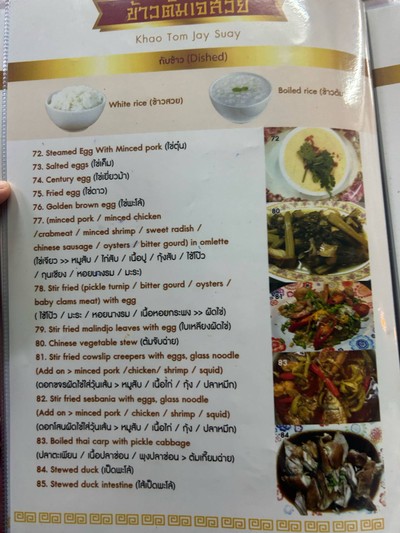 ข้าวต้มเจ๊สวย
Khao Tom Jay Suay
กับข้าว (Dished)
White rice (ข้าวสวย)
Boiled rice (ข้าวต้ม)
72. Steamed Egg With Minced pork (ไข่ตุ๋น)
73. Salted eggs (ไข่เค็ม)
74. Century egg (ไข่เยี่ยวม้า)
75. Fried egg (ไข่ดาว)
76. Golden brown egg (ไข่พะโล้)
77. (minced pork / minced chicken
/crabmeat / minced shrimp / sweet radish /
chinese sausage / oysters / bitter gourd) in omlette
(ไข่เจียว >> หมูสับ / ไก่สับ / เนื้อปู / กุ้งสับ / ไช้โป๊ว
/ กุนเชียง / หอยนางรม / มะระ)
78. Stir fried (pickle turnip / bitter gourd / oysters /
baby clams meat) with egg
( ไช้โป๊ว / มะระ / หอยนางรม / เนื้อหอยกระพง >> ผัดไข่)
79. Stir fried malindjo leaves with egg (ใบเหลียงผัดไข่)
80. Chinese vegetable stew (ต้มจับฉ่าย)
81. Stir fried cowslip creepers with eggs, glass noodle
(Add on > minced pork / chicken / shrimp / squid)
(ดอกขจรผัดไข่ใส่วุ้นเส้น > หมูสับ / เนื้อไก่ / กุ้ง / ปลาหมึก)
82. Stir fried sesbania with eggs, glass noodle
(Add on > minced pork / chicken / shrimp / squid)
(ดอกโสนผัดไข่ใส่วุ้นเส้น > หมูสับ / เนื้อไก่ / กุ้ง / ปลาหมึก)
83. Boiled thai carp with pickle cabbage
(ปลาตะเพียน / เนื้อปลาช่อน / พุงปลาช่อน > ต้มเกี้ยมฉ่าย)
84. Stewed duck (เป็ดพะโล้)
85. Stewed duck intestine (ไส้เป็ดพะโล้)
72
80
81
83
84